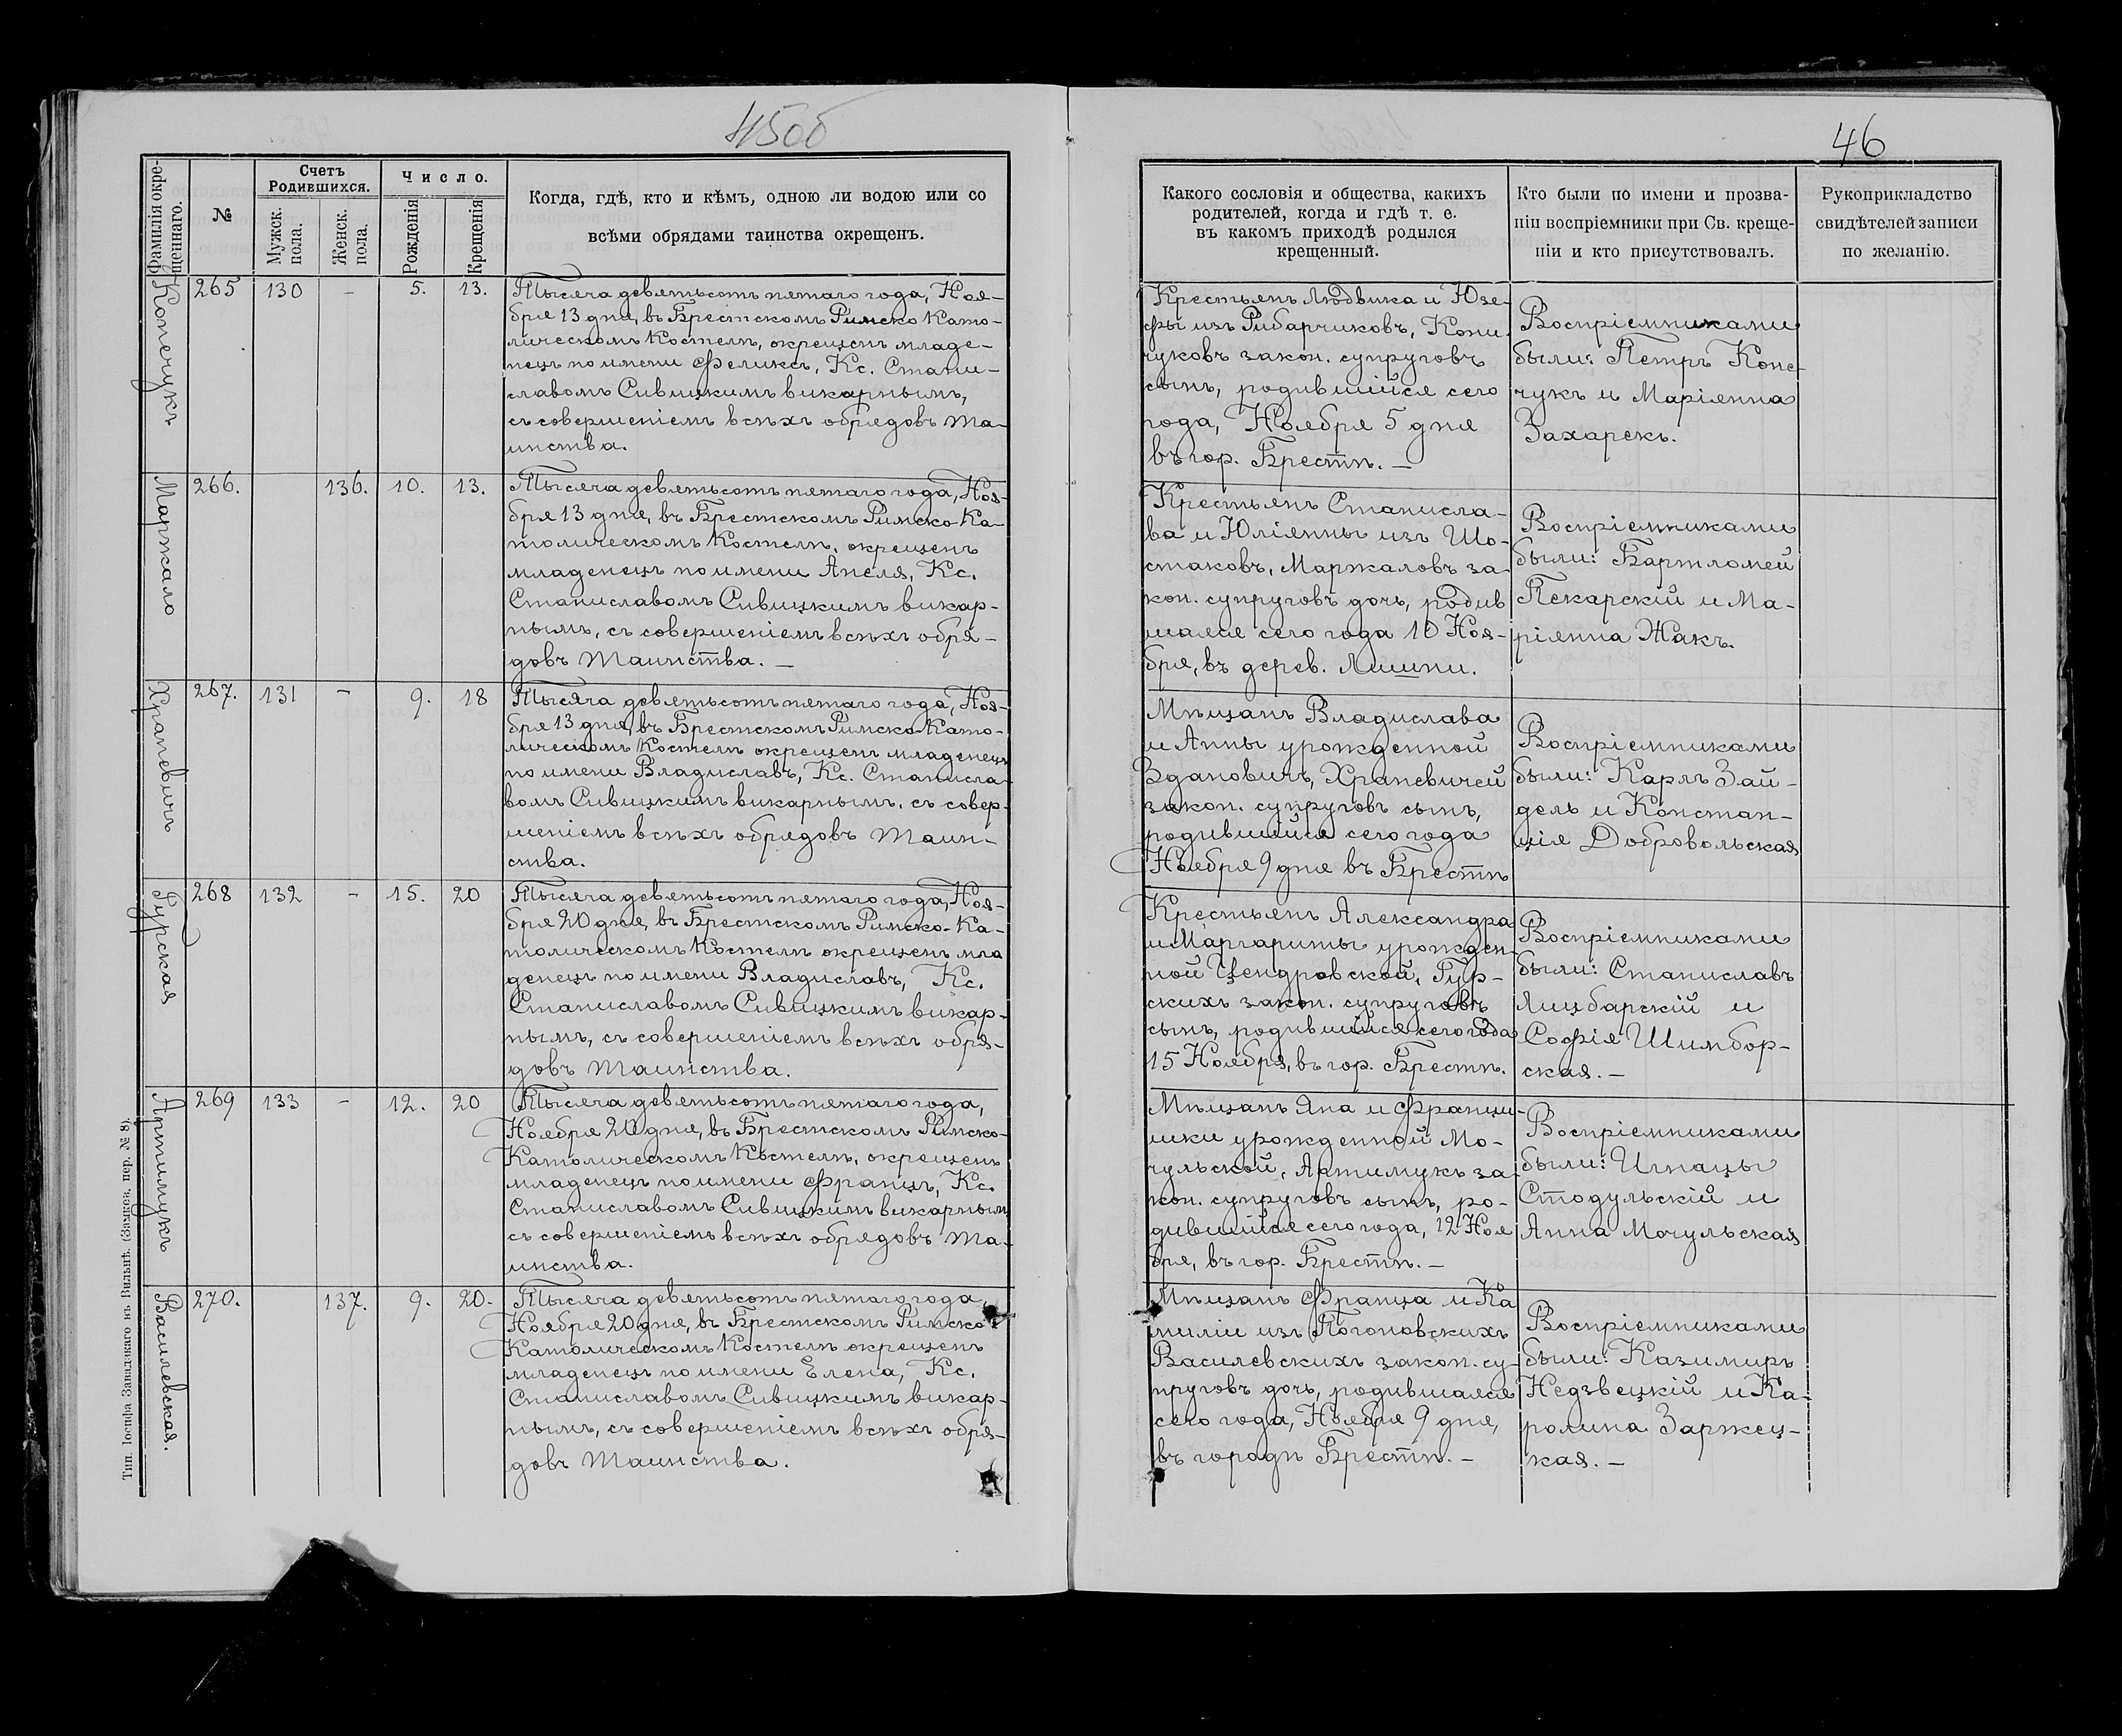 45об
46
Фамилія окре-
щеннаго.
№
Счетъ
Родившихся.
Мужск.
пола.
Женск.
пола.
Число.
Рожденія
Крещенія
Когда, гдѣ, кто и кѣмъ, одною ли водою или со
всѣми обрядами таинства окрещенъ.
Какого сословія и общества, какихъ
родителей, когда и гдѣ т. е.
въ какомъ приходѣ родился
крещенный.
Кто были по имени и прозва-
ніи воспріемники при Св. креще-
ніи и кто присутствовалъ.
Рукоприкладство
свидѣтелей записи
по желанію.
Копечукъ
265 130 – 5. 13.
Тысяча девятьсотъ пятаго года, Ноя-
бря 13 дня, въ Брестскомъ Римско Като-
лическомъ Костелѣ, окрещенъ младе-
нецъ по имени Феликсъ, Кс. Стани-
славомъ Сивицкимъ викарнымъ,
съ совершеніемъ всѣхъ обрядовъ та-
инства.
Крестьянъ Людвика и Юзе-
фы изъ Рибарчиковъ, Копи-
чуковъ закон. супруговъ
сынъ, родившійся сего
года, Ноября 5 дня
въ гор. Брестѣ. –
Воспріемниками
были: Петръ Копе-
чукъ и Маріянна
Захарекъ.
Маржкало
266. 136. 10. 13.
Тысяча девятьсотъ пятаго года, Ноя-
бря 13 дня, въ Брестскомъ Римско-Ка-
толическомъ Костелѣ, окрещенъ
младенецъ по имени Анеля, Кс.
Станиславомъ Сивицкимъ викар-
нымъ, съ совершеніемъ всѣхъ обря-
довъ Таинства. –
Крестьянъ Станисла-
ва и Юліянны изъ Шо-
стаковъ, Маржаловъ за-
кон. супруговъ дочь, родив
шаяся сего года 10 Ноя-
бря, въ дерев. Лишни.
Воспріемниками
были: Бартломей
Пекарскій и Ма-
ріянна Жакъ.
Храневичъ
267. 131 – 9. 18
Тысяча девятьсотъ пятаго года, Ноя-
бря 13 дня, въ Брестскомъ Римско-Като-
лическомъ Костелѣ окрещенъ младенецъ
по имени Владиславъ, Кс. Станисла-
вомъ Сивицкимъ викарнымъ, съ совер-
шеніемъ всѣхъ обрядовъ Таин-
ства.
Мѣщанъ Владислава
и Анны урожденной
Здановичъ, Храневичей
закон. супруговъ сынъ,
родившійся сего года
Ноября 9 дня въ Брестѣ
Воспріемниками
были: Карлъ Зай-
дель и Констан-
ція Добровольская
Гурская
268 132 – 15. 20
Тысяча девятьсотъ пятаго года, Ноя-
бря 20 дня, въ Брестскомъ Римско-Ка-
толическомъ Костелѣ окрещенъ мла
денецъ по имени Владиславъ, Кс.
Станиславомъ Сивицкимъ викар-
нымъ, съ совершеніемъ всѣхъ обря-
довъ Таинства.
Крестьянъ Александра
и Маргариты урожден-
ной Цендровской, Гур-
скихъ закон. супруговъ
сынъ, родившійся сего года
15 Ноября, въ гор. Брестѣ.
Воспріемниками
были: Станиславъ
Лицбарскій и
Софія Шимбор-
ская. –
Артимукъ
269 133 – 12. 20
Тысяча девятьсотъ пятаго года,
Ноября 20 дня, въ Брестскомъ Римско-
Католическомъ Костелѣ, окрещенъ
младенецъ по имени Францъ, Кс.
Станиславомъ Сивицкимъ викарным
съ совершеніемъ всѣхъ обрядовъ Та-
инства.
Мѣщанъ Яна и Франци-
шки урожденной Мо-
чульской, Артимукъ за-
кон. супруговъ сынъ, ро-
дившійся сего года, 12 Ноя
бря, въ гор. Брестѣ. –
Воспріемниками
были: Игнацы
Стодульскій и
Анна Мочульская
Василевская.
270. 137. 9. 20.
Тысяча девятьсотъ пятаго года,
Ноября 20 дня, въ Брестскомъ Римско-
Католическомъ Костелѣ окрещенъ
младенецъ по имени Елена, Кс.
Станиславомъ Сивицкимъ викар-
нымъ, съ совершеніемъ всѣхъ обря-
довъ Таинства.
Мѣщанъ Франца и Ка
миліи изъ Погоновскихъ
Василевскихъ закон. су-
пруговъ дочь, родившаяся
сего года, Ноября 9 дня,
въ городѣ Брестѣ. –
Воспріемниками
были: Казимиръ
Недзвецкій и Ка-
ролина Заржец-
кая. –
Тип. Іосифа Завадзкаго въ Вильнѣ. (Замков. пер. № 8).